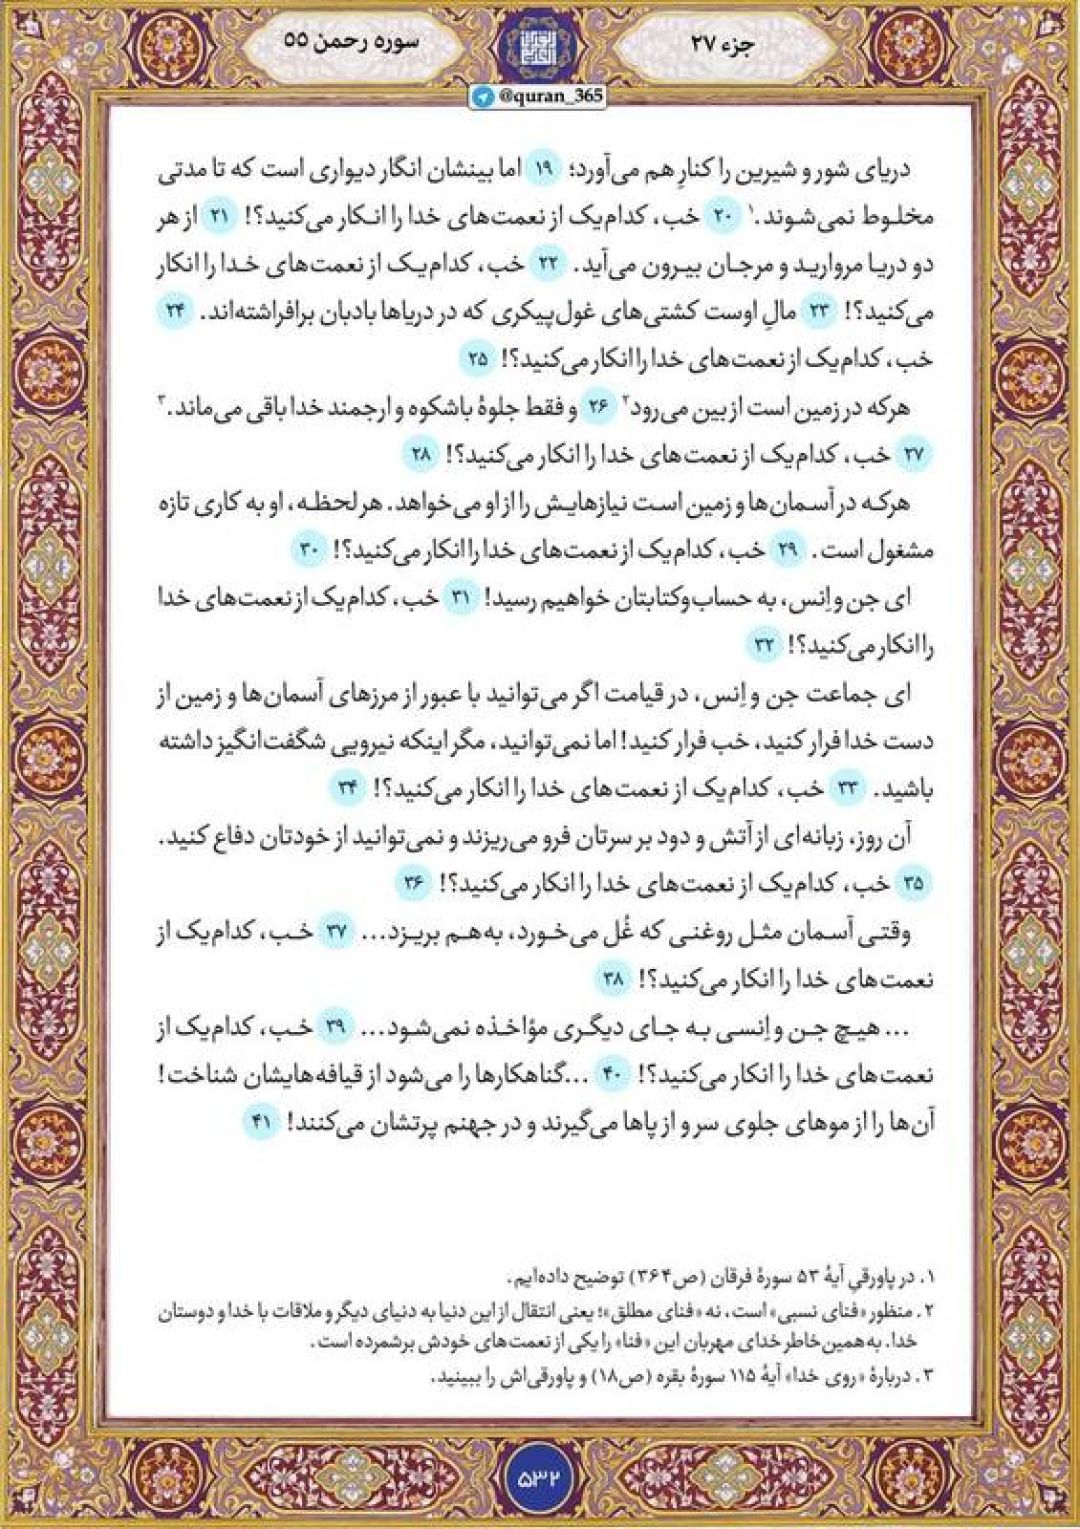 جزء ۲۷
سوره رحمن ۵۵
@quran_365
دریای شور و شیرین را کنارِ هم می‌آورد؛ ۱۹ اما بینشان انگار دیواری است که تا مدتی
مخلوط نمی‌شوند.۱ ۲۰ خب، کدام‌یک از نعمت‌های خدا را انکار می‌کنید؟! ۲۱ از هر
دو دریا مروارید و مرجان بیرون می‌آید. ۲۲ خب، کدام‌یک از نعمت‌های خدا را انکار
می‌کنید؟! ۲۳ مالِ اوست کشتی‌های غول‌پیکری که در دریاها بادبان برافراشته‌اند. ۲۴
خب، کدام‌یک از نعمت‌های خدا را انکار می‌کنید؟! ۲۵
هرکه در زمین است از بین می‌رود۲ ۲۶ و فقط جلوهٔ باشکوه و ارجمند خدا باقی می‌ماند.۳
۲۷ خب، کدام‌یک از نعمت‌های خدا را انکار می‌کنید؟! ۲۸
هرکه در آسمان‌ها و زمین است نیازهایش را از او می‌خواهد. هر لحظه، او به کاری تازه
مشغول است. ۲۹ خب، کدام‌یک از نعمت‌های خدا را انکار می‌کنید؟! ۳۰
ای جن و اِنس، به حساب‌وکتابتان خواهیم رسید! ۳۱ خب، کدام‌یک از نعمت‌های خدا
را انکار می‌کنید؟! ۳۲
ای جماعت جن و اِنس، در قیامت اگر می‌توانید با عبور از مرزهای آسمان‌ها و زمین از
دست خدا فرار کنید، خب فرار کنید! اما نمی‌توانید، مگر اینکه نیرویی شگفت‌انگیز داشته
باشید. ۳۳ خب، کدام‌یک از نعمت‌های خدا را انکار می‌کنید؟! ۳۴
آن روز، زبانه‌ای از آتش و دود بر سرتان فرو می‌ریزند و نمی‌توانید از خودتان دفاع کنید.
۳۵ خب، کدام‌یک از نعمت‌های خدا را انکار می‌کنید؟! ۳۶
وقتی آسمان مثل روغنی که غُل می‌خورد، به‌هم بریزد... ۳۷ خب، کدام‌یک از
نعمت‌های خدا را انکار می‌کنید؟! ۳۸
... هیچ جن و اِنسی به جای دیگری مؤاخذه نمی‌شود... ۳۹ خب، کدام‌یک از
نعمت‌های خدا را انکار می‌کنید؟! ۴۰ ...گناهکارها را می‌شود از قیافه‌هایشان شناخت!
آن‌ها را از موهای جلوی سر و از پاها می‌گیرند و در جهنم پرتشان می‌کنند! ۴۱
۱. در پاورقیِ آیهٔ ۵۳ سورهٔ فرقان (ص۳۶۴) توضیح داده‌ایم.
۲. منظور «فنای نسبی» است، نه «فنای مطلق»؛ یعنی انتقال از این دنیا به دنیای دیگر و ملاقات با خدا و دوستان
خدا. به‌همین‌خاطر خدای مهربان این «فنا» را یکی از نعمت‌های خودش برشمرده است.
۳. دربارهٔ «روی خدا» آیهٔ ۱۱۵ سورهٔ بقره (ص۱۸) و پاورقی‌اش را ببینید.
۵۳۲